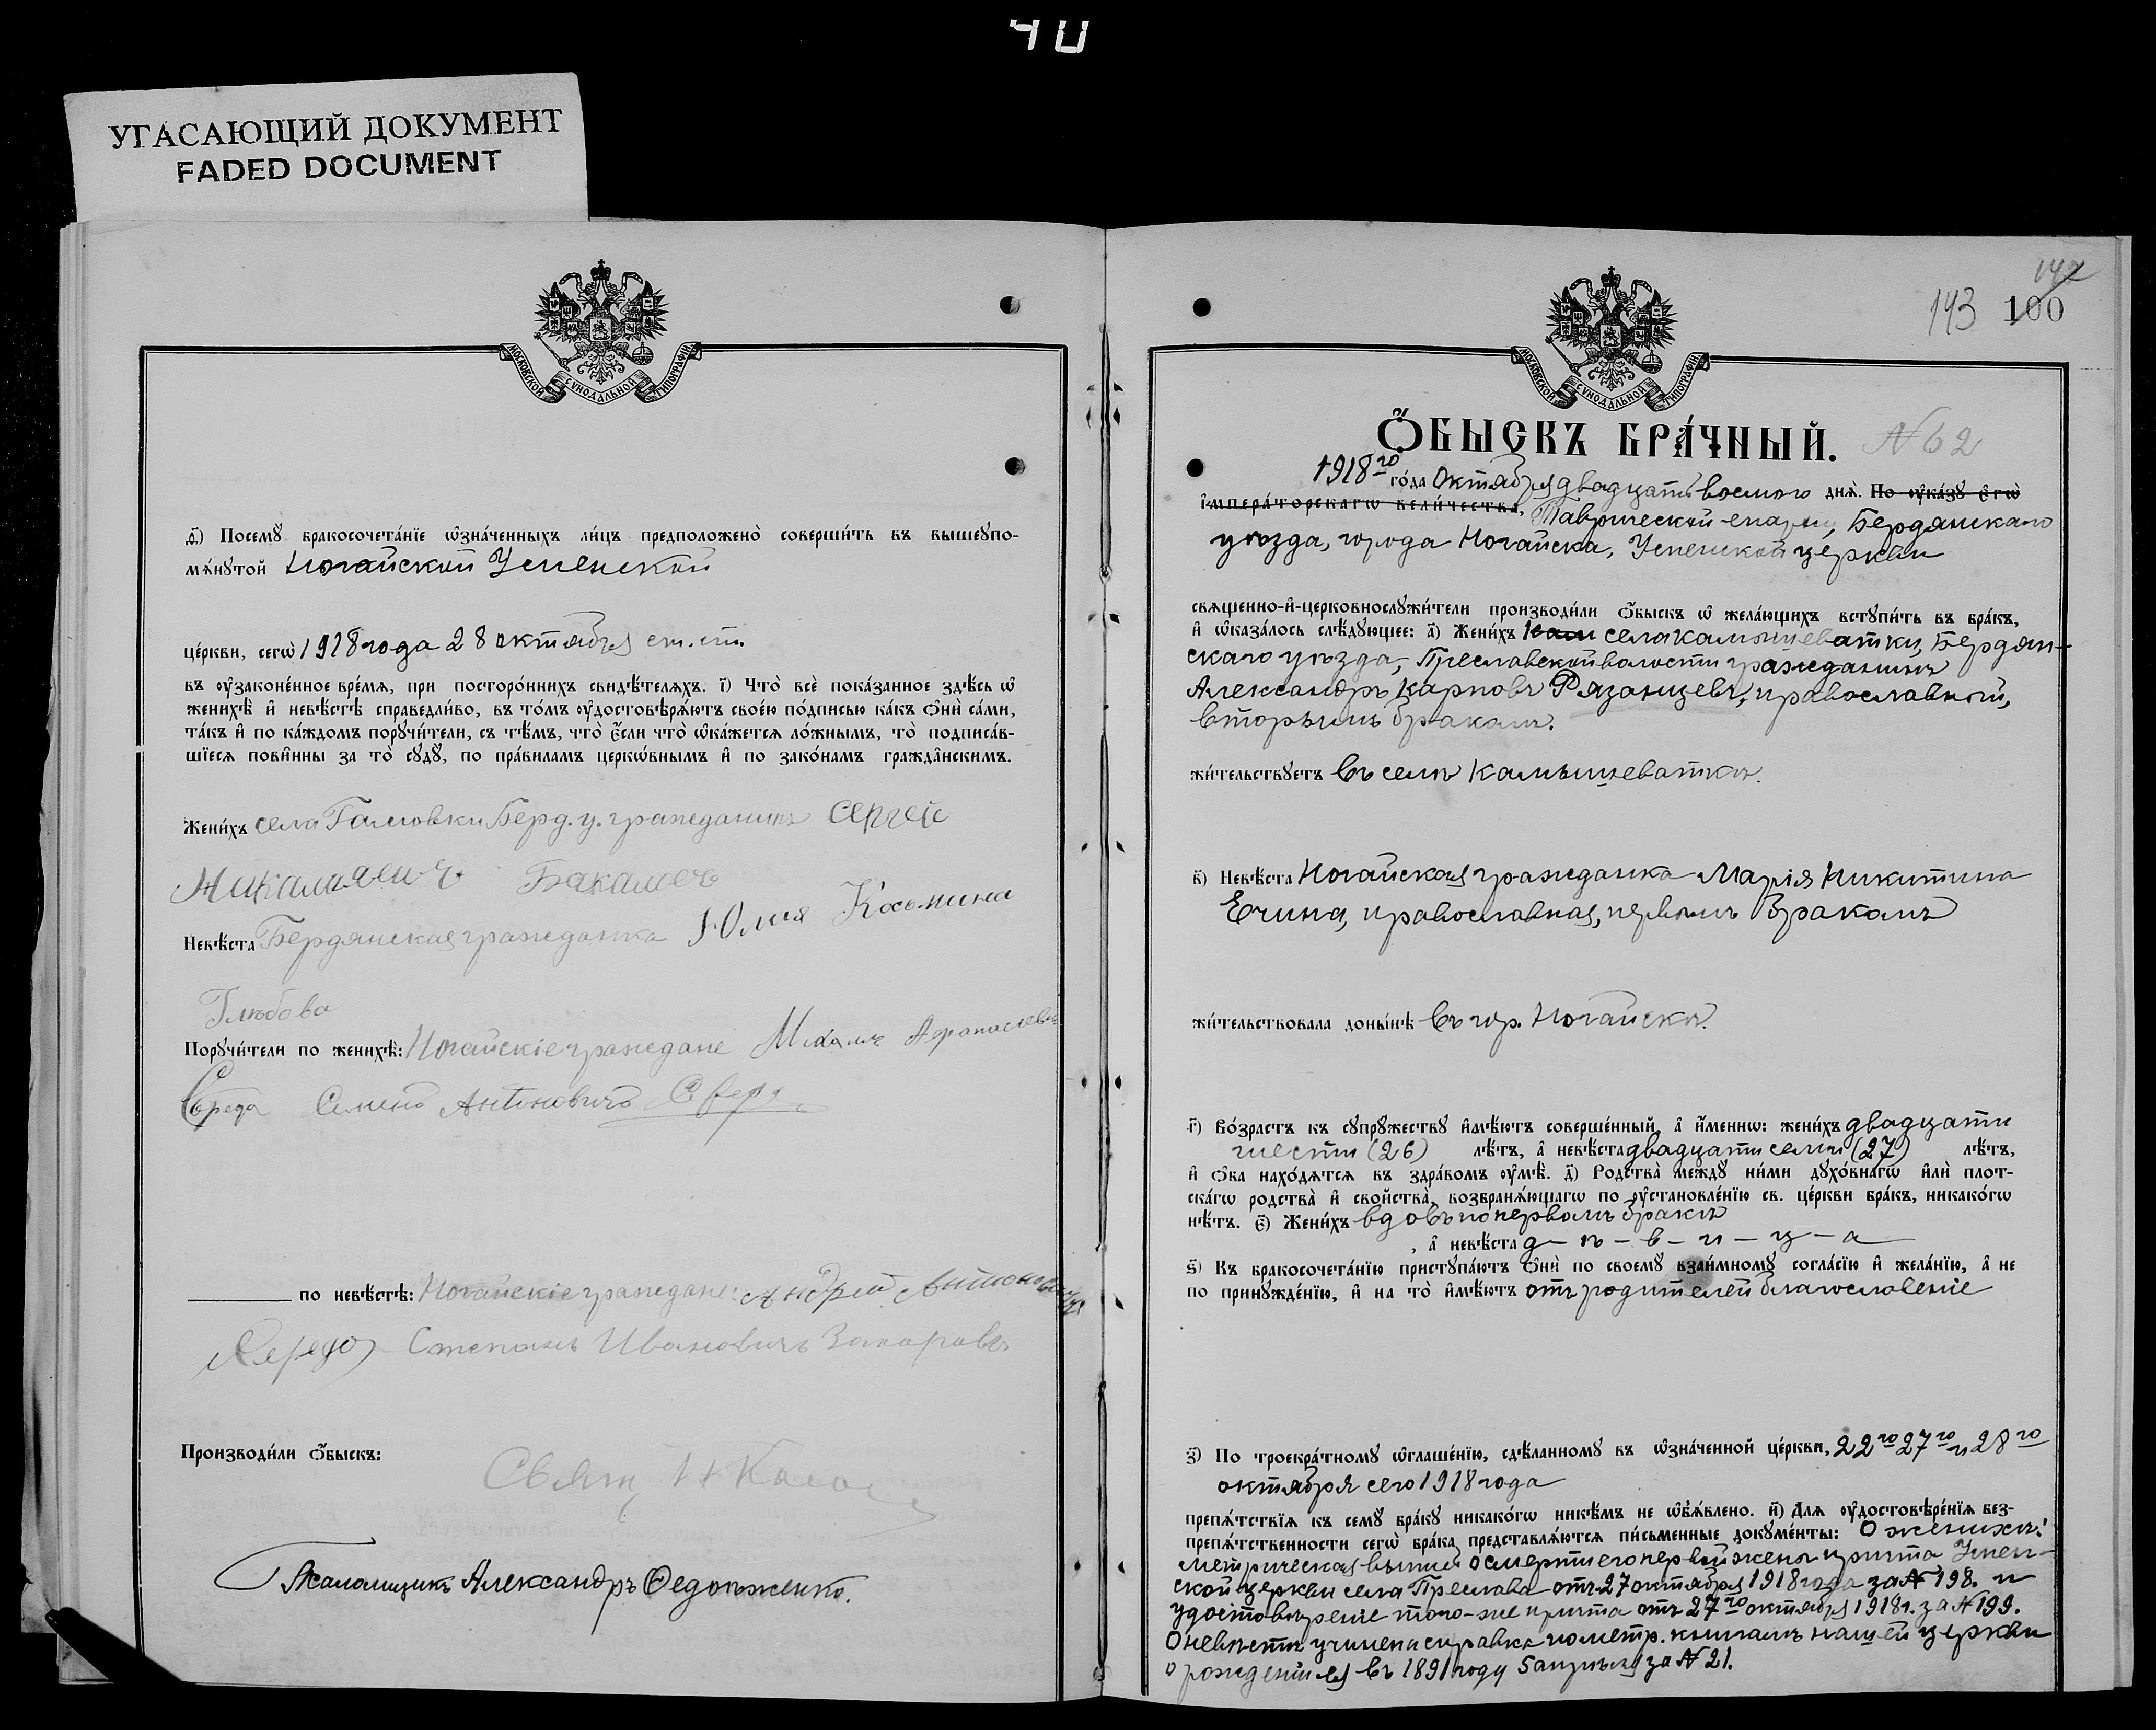 40
УГАСАЮЩИЙ ДОКУМЕНТ
FADED DOCUMENT
МОСКОВСКОЙ СѴНОДАЛЬНОЙ ТИПОГРАФІИ
д҃) Посемꙋ бракосочета́нїе ѡ҆зна́ченныхъ ли́цъ предположено̀ соверши́ть въ вышеꙋпо-
мѧ́нꙋтой Ногайской Успенской
це́ркви, сегѡ̀ 1918 года 28 октября ст. ст.
въ ᲂу҆законе́нное вре́мѧ, при посторо́ннихъ свидѣ́телѧхъ. і҃) Что̀ всѐ пока́занное здѣ́сь ѡ҆
женихѣ̀ и҆ невѣ́стѣ справедли́во, въ то́мъ ᲂу҆достовѣрѧ́ютъ свое́ю по́дписью ка́къ ѻ҆нѝ са́ми,
та́къ и҆ по ка́ждомъ порꙋчи́тели, съ тѣ́мъ, что̀ є҆́сли что̀ ѡ҆ка́жетсѧ ло́жнымъ, то̀ подписа́в-
шїесѧ пови́нны за то̀ сꙋдꙋ̀, по пра́виламъ церкѡ́внымъ и҆ по зако́намъ гражда̂нскимъ.
Жени́хъ села Берд. у. гражданинъ Сергей
Бакаловъ
Невѣ́ста Бердянская гражданка Юлия Косьмина
Глюбова
Порꙋчи́тели по женихѣ̀: Ногайскіе граждане
Середа Семенъ Антоновичъ
по невѣ́стѣ: Ногайскіе граждане: Андрей Антоновичъ
Середа Степанъ Ивановичъ Захаровъ
Производи́ли ѻ҆́быскъ:
Свящ. Н
Псаломщикъ Александръ Ѳедоѣженко.
142
143 100
МОСКОВСКОЙ СѴНОДАЛЬНОЙ ТИПОГРАФІИ
Ѻ҆́БЫСКЪ БРА́ЧНЫЙ. № 62
1918го го́да Октября двадцать восьмого днѧ̀. По ᲂу҆ка́зꙋ є҆гѡ̀
і҆мпера́торскагѡ вели́чества, Таврической епархіи, Бердянскаго
уѣзда, города Ногайска, Успенской церкви
свѧще́нно-и҆-церковнослꙋжи́тели производи́ли ѻ҆́быскъ ѡ҆ жела́ющихъ встꙋпи́ть въ бра́къ,
и҆ ѡ҆каза́лось слѣ́дꙋющее: а҃) Жени́хъ села Камышеватки, Бердян-
скаго уѣзда, Преславской волости гражданинъ
Александръ Карповъ Рязанцевъ, православный,
вторымъ бракомъ.
жи́тельствꙋетъ въ селѣ Камышеваткѣ.
в҃) Невѣ́ста Ногайская гражданка Марія Никитина
Ечина, православная, первымъ бракомъ
жи́тельствовала доны́нѣ въ гор. Ногайскѣ.
г҃) Во́зрастъ къ сꙋпрꙋ́жествꙋ и҆мѣ́ютъ соверше́нный, а҆ и҆́меннѡ: жени́хъ двадцати
шести (26) лѣ́тъ, а҆ невѣ́ста двадцати семи (27) лѣ́тъ,
и҆ ѻ҆́ба нахо́дѧтсѧ въ здра́вомъ ᲂу҆мѣ̀. д҃) Родства̀ междꙋ̀ ни́ми дꙋхо́внагѡ и҆лѝ плот-
ска́гѡ родства̀ и҆ сво́йства, возбранѧ́ющагѡ по ᲂу҆становле́нїю св. це́ркви бра́къ, никако́гѡ
нѣ́тъ. є҃) Жени́хъ вдовъ по первомъ бракѣ
, а҆ невѣ́ста д – ѣ – в – и – ц – а
ѕ҃) Къ бракосочета́нїю пристꙋпа́ютъ ѻ҆нѝ по своемꙋ̀ взаи́мномꙋ согла́сїю и҆ жела́нїю, а҆ не
по принꙋжде́нїю, и҆ на то̀ и҆мѣ́ютъ отъ родителей благословеніе
з҃) По троекра́тномꙋ ѡ҆глаше́нїю, сдѣ́ланномꙋ въ ѡ҆зна́ченной це́ркви, 22го 27го и 28го
октября сего 1918 года
препѧ́тствїѧ къ семꙋ̀ бра́кꙋ никако́гѡ никѣ́мъ не ѡ҆б̾ѧ́влено. и҃) Длѧ ᲂу҆достовѣре́нїѧ без-
препѧ́тственности сегѡ̀ бра́ка представлѧ́ютсѧ пи́сьменные докꙋме́нты: О женихѣ:
метрическая выпись о смерти его первой жены причта Успен-
ской церкви села Преслава отъ 27 октября 1918 года за № 198. и
удостовѣреніе того-же причта отъ 27го октября 1918 г. за № 199.
О невѣстѣ учинена справка по метр. книгамъ нашей церкви
о рожденіи ея въ 1891 году 5 апрѣля за № 21.